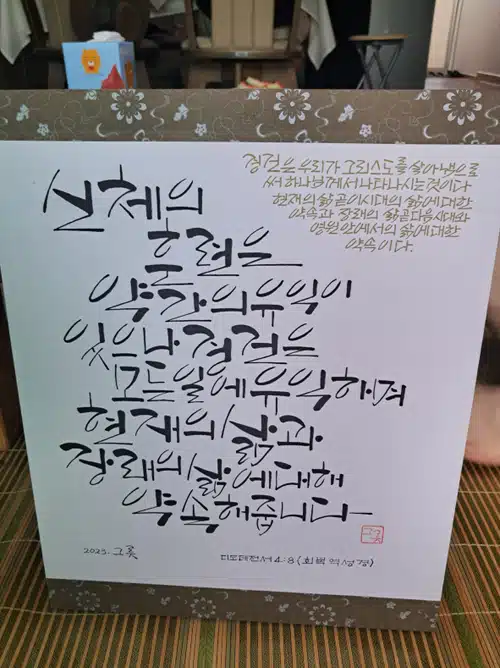 경건은 우리가 그리스도를 살아냄으로
써 하나님께서 나타나시는것이다
현재의 삶 곧이시대의 삶에대한
약속과 장래의 삶곧다음시대와
영원안에서의 삶에대한
약속이다.
신체의
훈련은
약간의유익이
있으나 경건은
모든일에유익하며
현재의 삶과
장래의 삶에대해
약속해줍니다
2025.
디모데전서4:8(회복역성경)